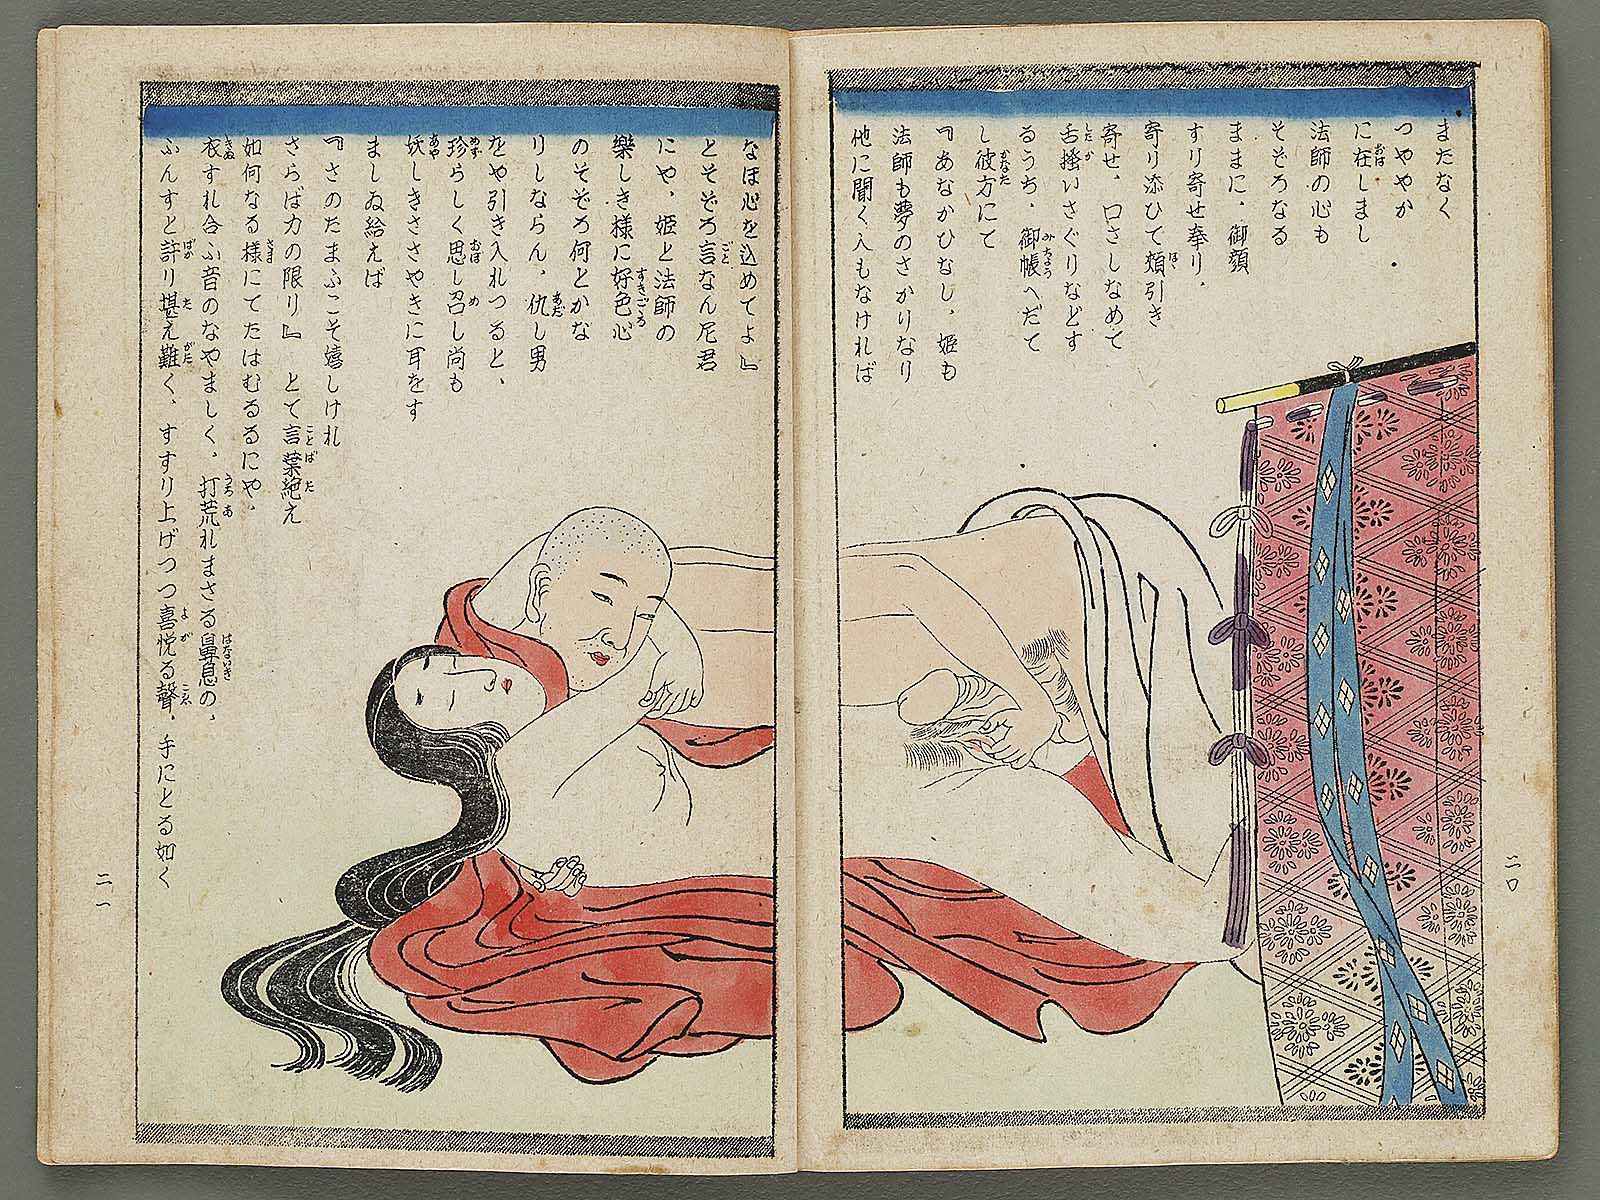 またなく
つややか
に在しまし
法師の心も
そぞろなる
ままに、御顔
すり寄せ奉り、
寄り添ひて頬引き
寄せ、口さしなめて
舌掻いさぐりなどす
るうち、御帳へだて
し彼方にて
『あなかひなし、姫も
法師も夢のさかりなり
他に聞く人もなければ
二〇
なほ心を込めてよ』
とそぞろ言なん尼君
にや、姫と法師の
樂しき様に好色心
のそぞろ何とかな
りしならん、仇し男
をや引き入れつると、
珍らしく思し召し尚も
妖しきささやきに耳をす
ましゐ給えば
『さのたまふこそ嬉しけれ
さらば力の限り』 とて言葉絶え
如何なる様にてたはむるるにや、
衣すれ合ふ音のなやましく、打荒れまさる鼻息の、
ふんすと許り堪え難く、すすり上げつつ喜悦る聲、手にとる如く
二一